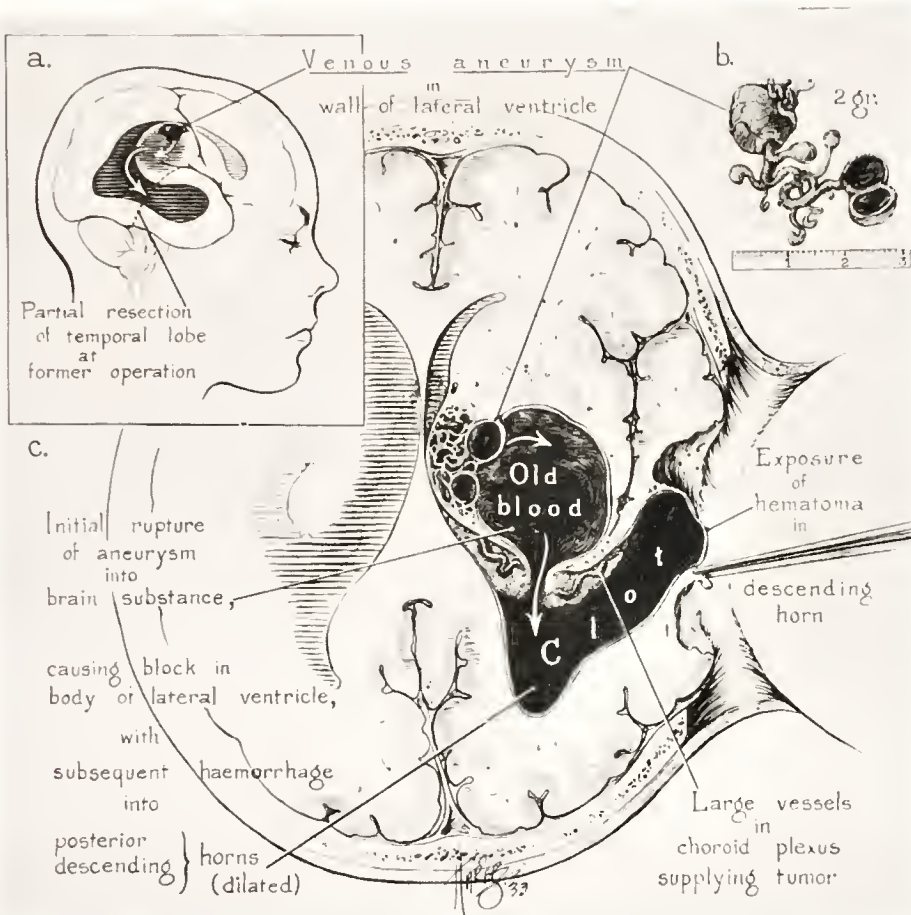 a.
Venous aneurysm
in
wall of lateral ventricle
b.
2 gr.
1 2 3
Partial resection
of temporal lobe
at
former operation
c.
Old
blood
Clot
Initial rupture
of aneurysm
into
brain substance,
causing block in
body of lateral ventricle,
with
subsequent haemorrhage
into
posterior
descending } horns
(dilated)
Exposure
of
hematoma
in
descending
horn
Large vessels
in
choroid plexus
supplying tumor
'33